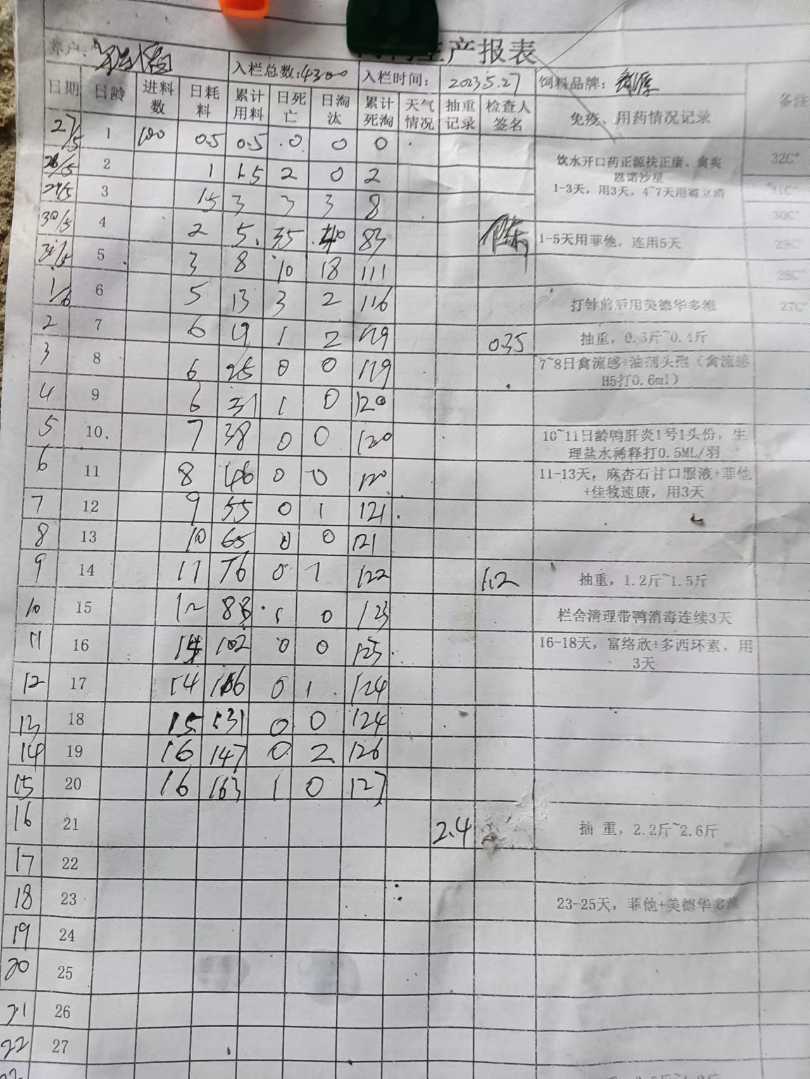 产报表
养户:
入栏总数:4300 入栏时间: 2023.5.27 饲料品牌:
日期 日龄 进料数 日耗料 累计用料 日死亡 日淘汰 累计死淘 天气情况 抽重记录 检查人签名 免疫、用药情况记录 备注
27/5 1 100 0.5 0.5 0 0 0
28/5 2 1 1.5 2 0 2 饮水开口药正源扶正康、禽炎
恩诺沙星 32C°
29/5 3 1.5 3 3 3 8 1-3天，用3天，4~7天用
31C°
30/5 4 2 5 35 40 83 1-5天用菲他，连用5天 30C°
29C°
31/5 5 3 8 10 18 111
28C°
1/6 6 5 13 3 2 116 打针前后用美德华多维 27C°
2 7 6 19 1 2 119 0.35 抽重，0.3斤~0.4斤
3 8 6 25 0 0 119 7~8日禽流感+油剂头孢（禽流感
H5打0.6ml）
4 9 6 31 1 0 120
5 10. 7 38 0 0 120 10~11日龄鸭肝炎1号1头份，生
理盐水稀释打0.5ML/羽
6 11 8 46 0 0 120 11-13天，麻杏石甘口服液+菲他
+佳牧速康，用3天
7 12 9 55 0 1 121
8 13 10 65 0 0 121
9 14 11 76 0 1 122 1.2 抽重，1.2斤~1.5斤
10 15 12 88 1 0 123 栏舍清理带鸭消毒连续3天
11 16 14 102 0 0 123 16-18天，富络欣+多西环素，用
3天
12 17 14 116 0 1 124
13 18 15 131 0 0 124
14 19 16 147 0 2 126
15 20 16 163 1 0 127
16 21 2.4 抽 重，2.2斤~2.6斤
17 22
18 23 23-25天，菲他+美德华多维
19 24
20 25
21 26
22 27